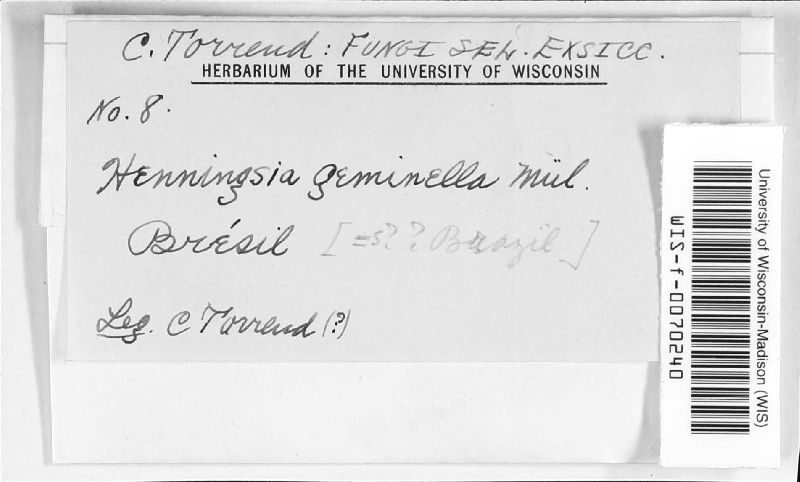 C. Torrend: FUNGI SEL. EXSICC.
HERBARIUM OF THE UNIVERSITY OF WISCONSIN
No. 8.
Henningsia geminella Möl.
Brésil [=s?? Brazil]
Leg. C Torrend (?)
University of Wisconsin-Madison (WIS)
WIS-f-0070240